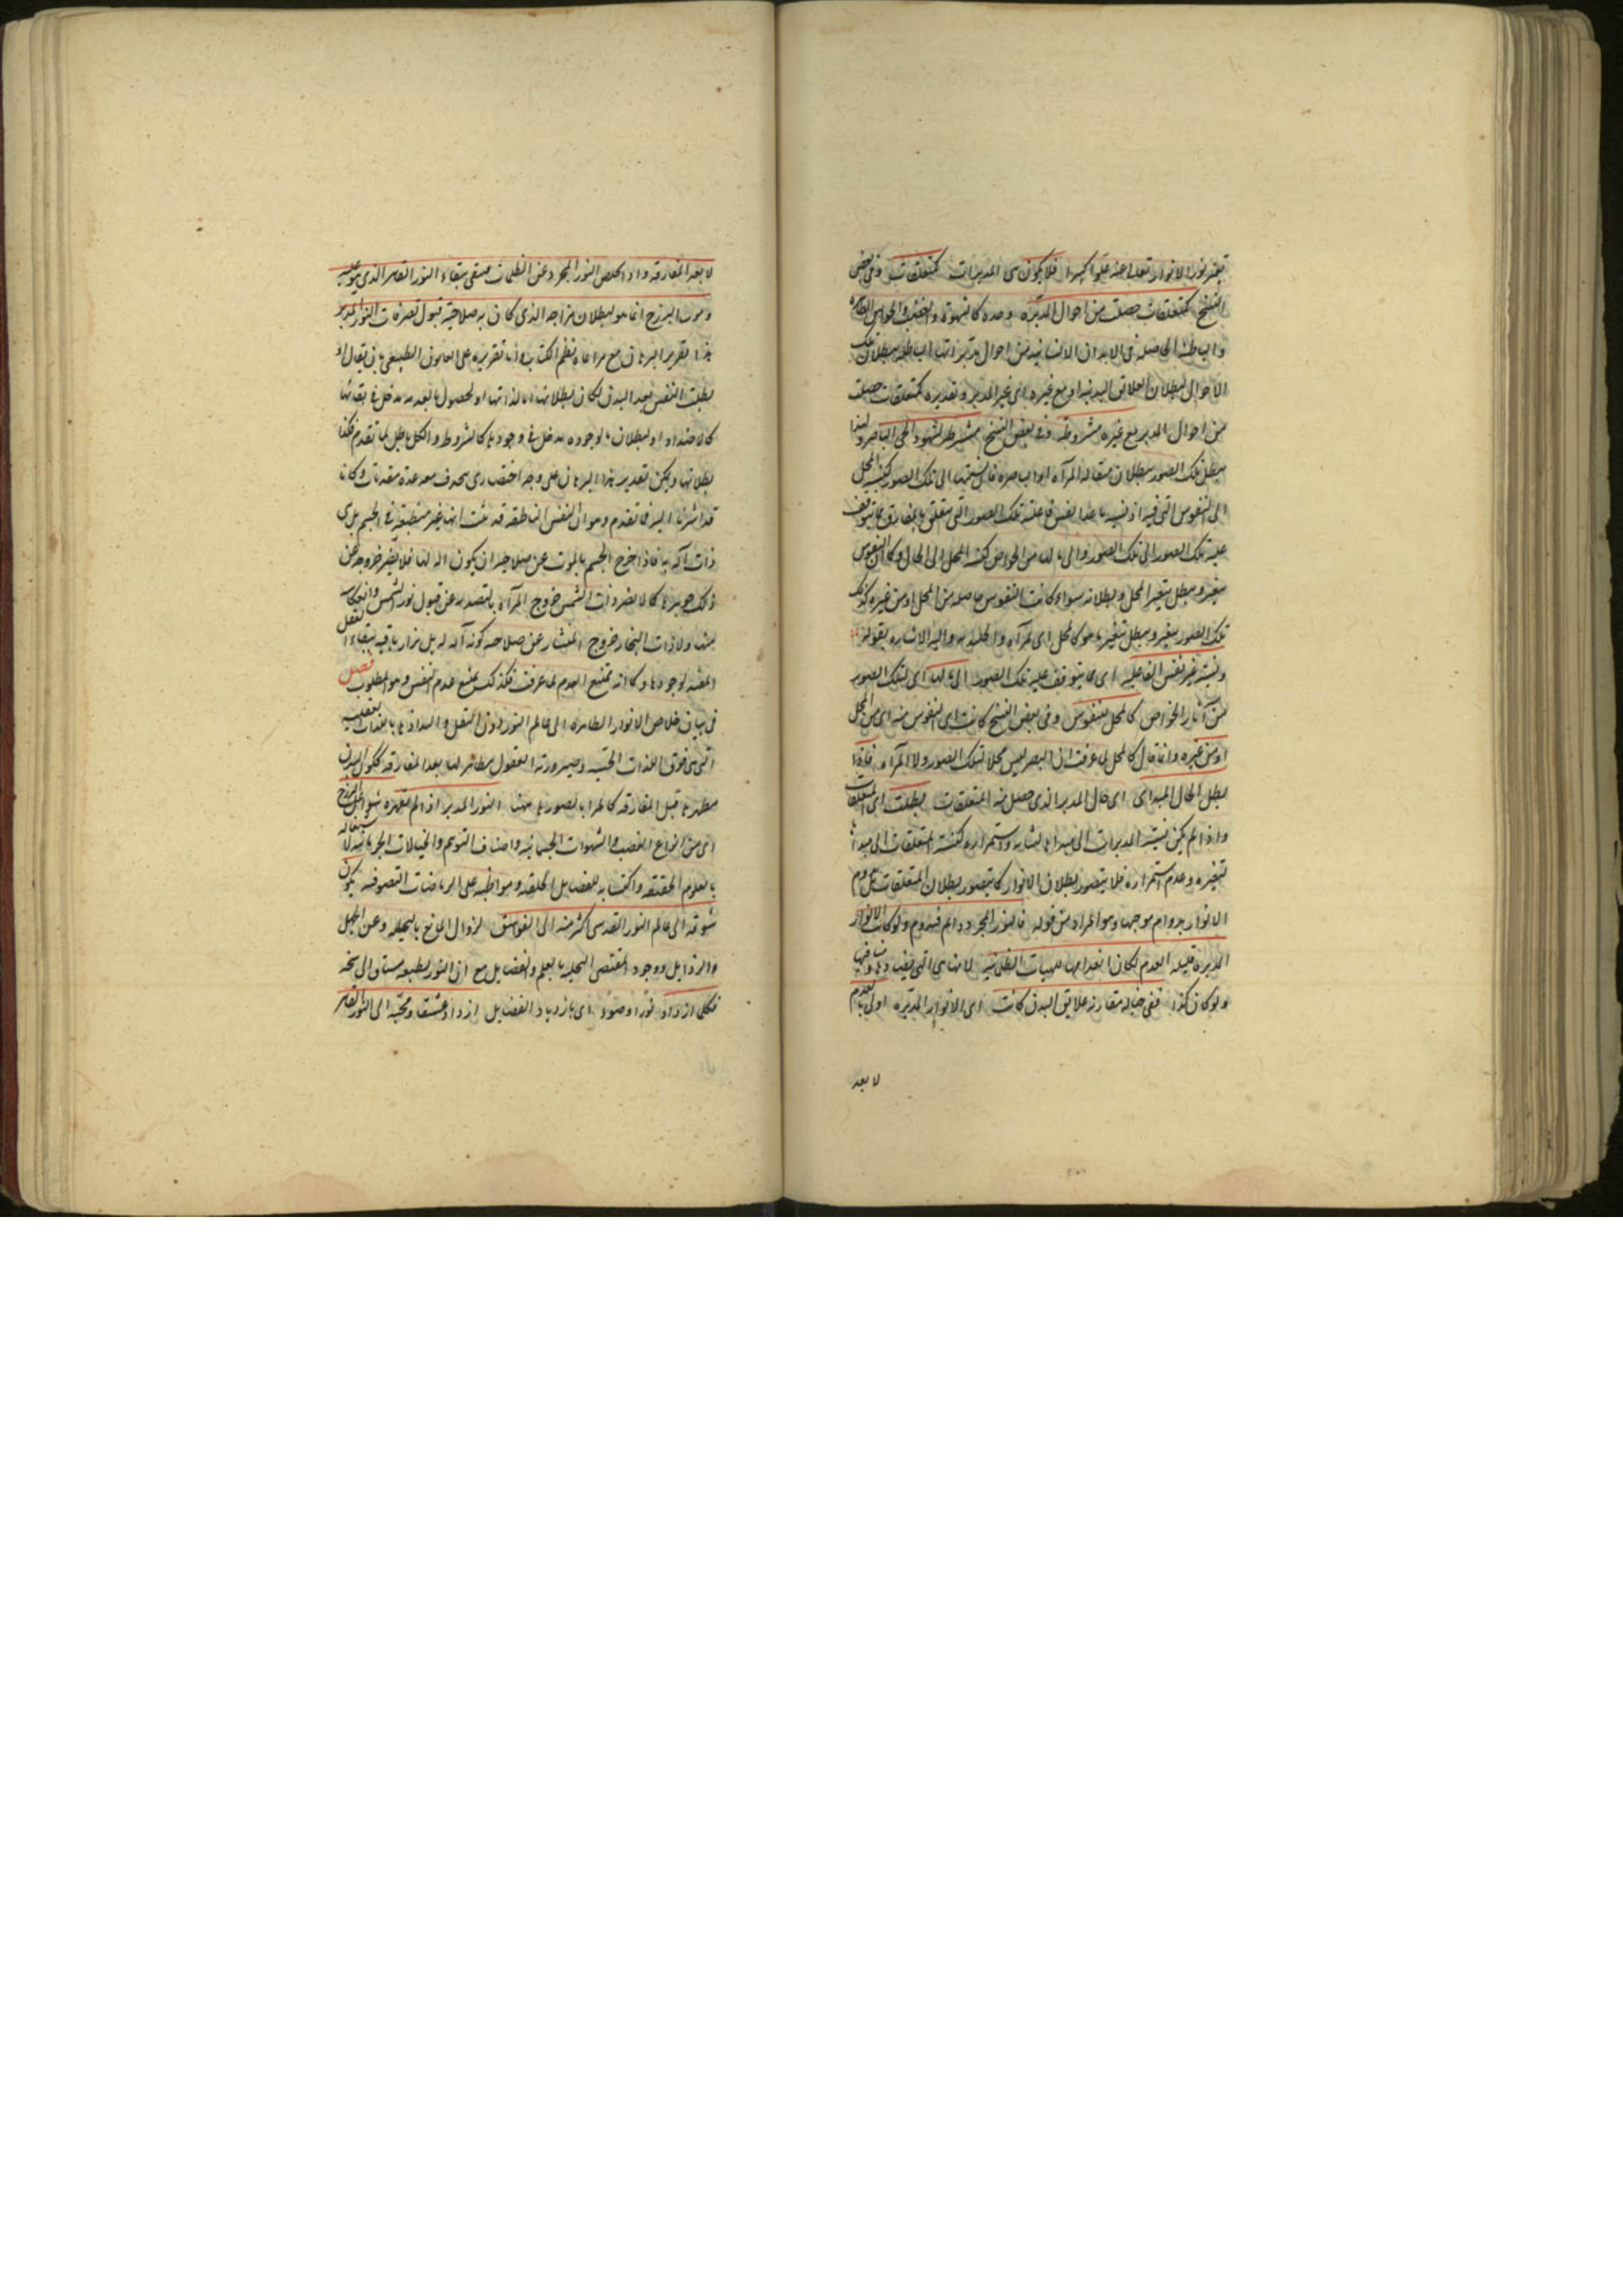 تغير نور الانوار تعالى عنه علوا كبيرا فلا يكون هى المدبرات كمتعلقات وفى بعض
النسخ كمتعلقات حصلت من احوال المدبره وحده كالشهوة والغضب والحواس الظاهره
والباطنة الحاصلة فى الابدان الانسانيه من احوال مدبراتها الباطلة ببطلان تلك
الاحوال لبطلان العلايق البدنيه او مع غيره اى غير المدبر وتقديره كمتعلقات حصلت
من احوال المدبر مع غيره مشروطه وفى بعض النسخ مشروطة لشهود الحى الباصر ولهذا
يبطل تلك الصور ببطلان مقابلة المرآه او الباصره فان نسبتها الى تلك الصور كنسبة المحل
الى النفوس التى فيه اذ نسبة ما عدا نفس فاعلية تلك الصور التى تتعلق بالمفارق مما يتوقف
عليه تلك الصور الى تلك الصور والى ما لها من الخواص كنسبة المحل الى الحال وكما ان النفوس
يتغير ويبطل بتغير المحل وبطلانه سواء كانت النفوس حاصلة من المحل او من غيره كذلك
تلك الصور يتغير ويبطل بتغير ما هو كالمحل اى المرآه والجليديه واليه الاشاره بقوله
ونسبة غير نفس الفاعليه اى مما يتوقف عليه تلك الصور الى ما لها اى لتلك الصور
من آثار الخواص كالمحل للنفوس وفى بعض النسخ كانت اى النفوس منه اى من المحل
او من غيره وانما قال كالمحل لما عرفت ان البصر ليس محلا لتلك الصور ولا المرآه فاذا
بطل الحال المبداى اى حال المدبر الذى حصل منه المتعلقات بطلت اى المتعلقات
واذا لم يكن نسبة المدبرات الى مبدائها لثباته واستمراره كنسبة المتعلقات الى مبدائها
لتغيره وعدم استمراره فلا يتصور بطلان الانوار كما يتصور بطلان المتعلقات بل يدوم
الانوار بدوام موجبها وهو المراد من قوله فالنور المجرد دايم فيدوم ولو كانت الانوار
المدبرة قابلة العدم لكان انعدامها للهيات الظلمانيه لانها هى التى تغيب دينها فيها
ولو كان كذا ففى حالة مقارنة علايق البدن كانت اى الانوار المدبره اولى بالعدم
لا بعد
لا بعد المفارقه واذا تخلص النور المجرد عن الظلمات فيبقى ببقاء النور القاهر الذى هو علته
وموت البرزخ انما هو لبطلان مزاجه الذى كان به صلاحية قبول تصرفات النور المدبر
هذا تقرير البرهان مع مراعاه نظم الكتاب واما تقريره على القانون الطبيعى بان يقال لو
بطلت النفس بعد البدن لكان بطلانها اما لذاتها او لحصول ما بعدمه مدخل فى بقائها
كالاضداد او لبطلان ما لوجوده مدخل فى وجودها كالشروط والكل باطل لما تقدم فكذا
بطلانها ويمكن تقدير هذا البرهان على وجه اختصارى بحذف عدة مقدمات وكانا
قد اشرنا اليه فيما تقدم وهو ان النفس الناطقه قد ثبت انها غير منطبعة فى الجسم بل هى
ذات آلة به فاذا خرج الجسم بالموت عن صلاحية ان يكون آلة لها فلا يضر خروجه عن
ذلك جوهرها كما لا يضر ذات الشمس خروج المرآه بالتصديه عن قبول نور الشمس وانعكاسه
منها ولا ذات النجار خروج المنشار عن صلاحية كونه آلة له بل يزال باقيه ببقاء العقل
المفيد لوجودها وكما انه ممتنع العدم لما عرفت فكذلك يمتنع عدم النفس وهو المطلوب فصل
فى بيان خلاص الانوار الطاهره الى عالم النور دون النقل والتذاذها باللذات العقليه
التى هى فوق اللذات الحسيه وصيرورة العقول مظاهر لها بعد المفارقه ككون البدن
مظهرها قبل المفارقه كالمرايا بصورها مهنا النور المدبر اذا لم تقهره شواغل البرزخ
اى من انواع الغضب والشهوات الجسمانيه واصناف التوهم والخيالات الجرمانيه لاشتغاله
بالعلوم الحقيقيه واكتسابه للفضايل الخلقيه ومواظبه على الرياضات التصوفيه يكون
شوقه الى عالم النور القدسى اكثر منه الى الغواسق لزوال المانع بالتخليه وعن الجهل
والرذايل ووجود المقتضى التحليه بالعلم والفضايل مع ان النور بطبعه مشتاق الى سنخه
فكلما ازداد نورا وضوءا اى بازدياد الفضايل ازداد عشقا ومحبة الى النور القاهر